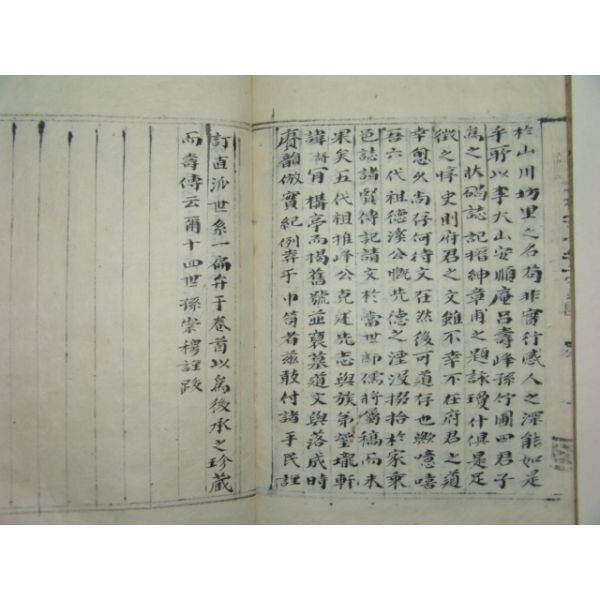 於山川坊里之名苟非實行感人之深能如是
乎所以李大山安順庵呂壽峰孫竹圃四君子
爲之狀碣誌記搢紳章甫之題詠璦什俱是足
徵之惇史則府君之文雖不幸不在府君之道
幸愈久尚存何待文在然後可道存也歟噫嘻
吾六代祖德溪公慨先德之湮沒掇拾於家乘
邑誌諸賢傳記請文於當世即儒將屬稿而未
果矣五代祖推峰公克述先志與族弟望瓏軒
諱 肯構亭而揭舊號並褒墓道文與落成時
賡韻倣實紀例弆于巾笥者玆敢付諸手民謹
訂直派世系一扁弁于卷首以爲後承之珍藏
而壽傳云爾十四世孫崇穆謹跋